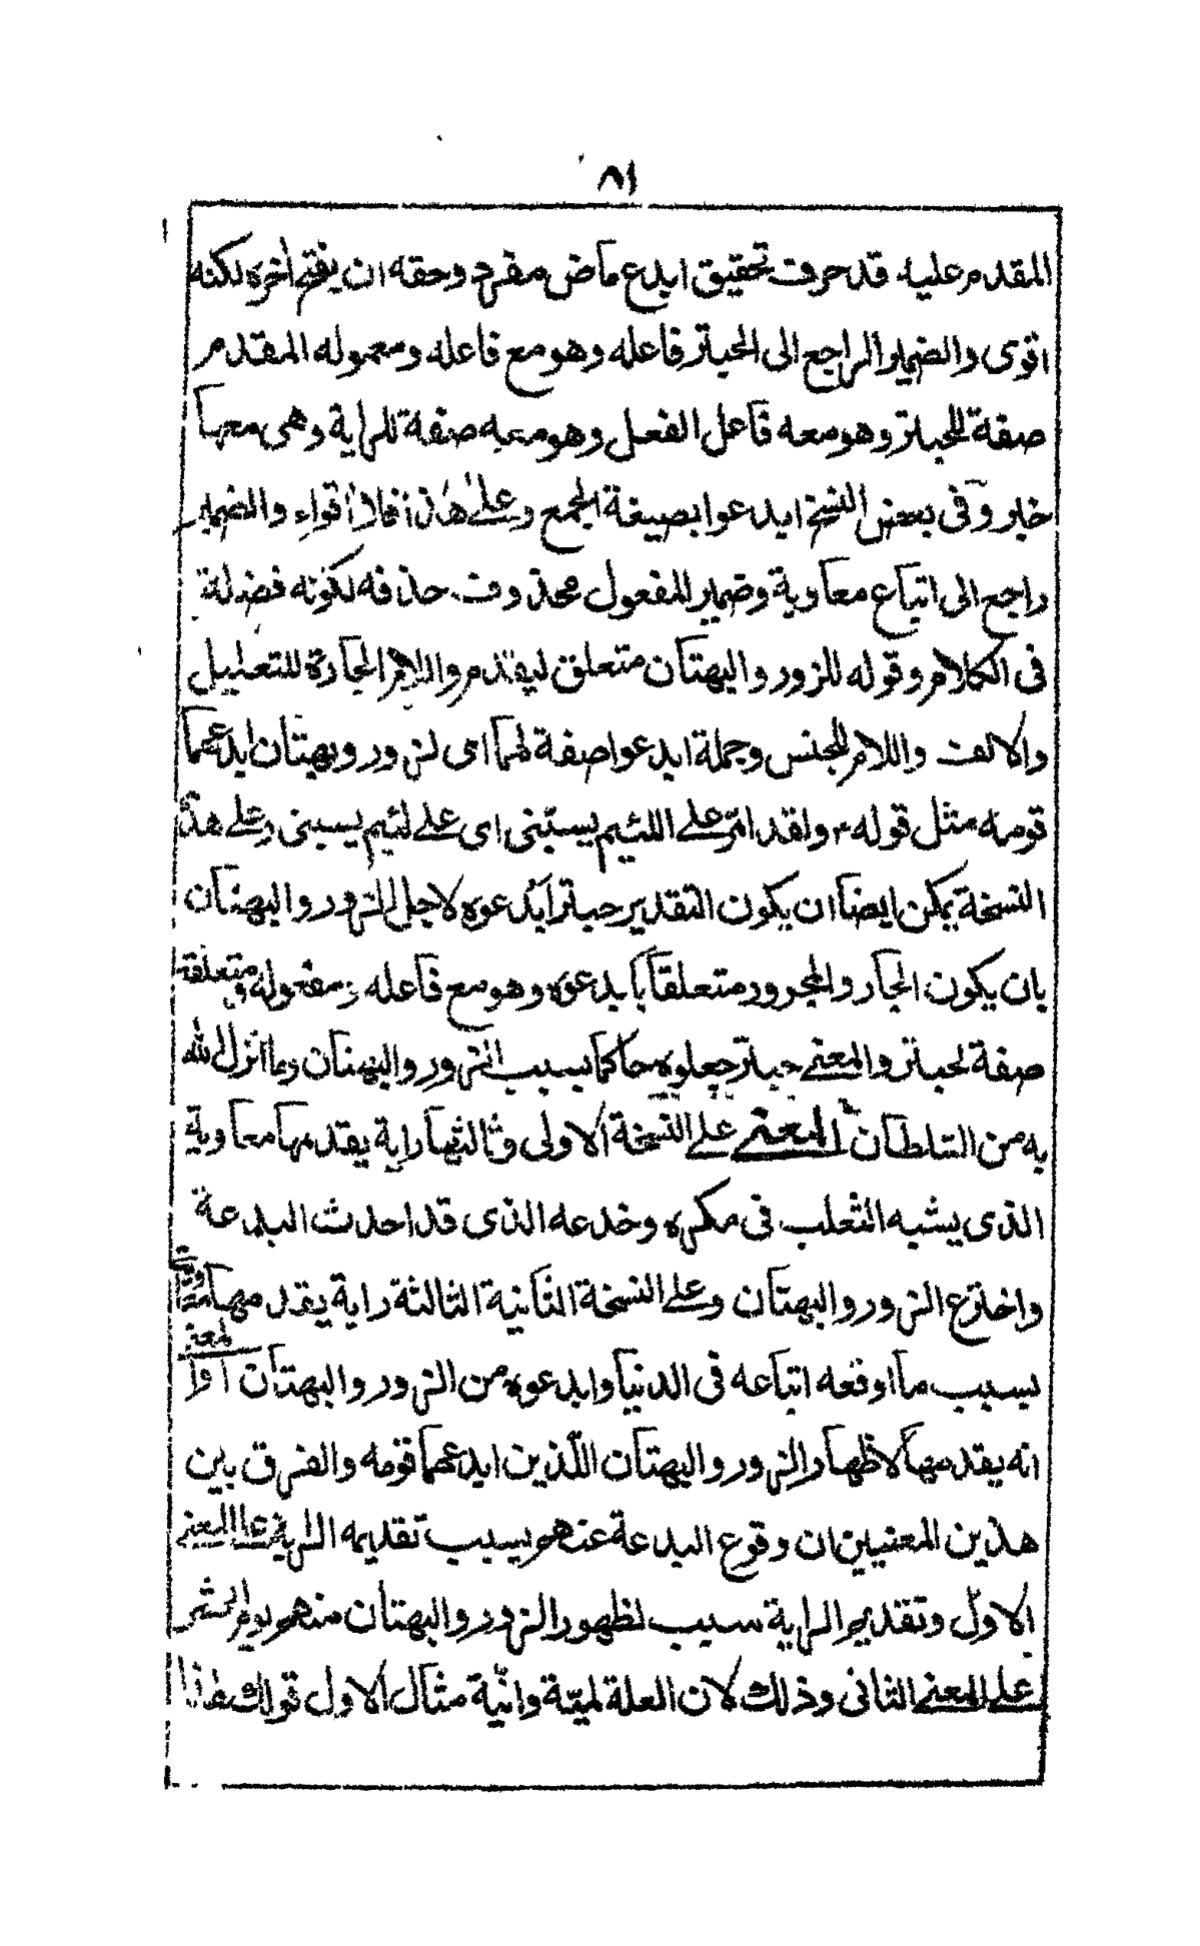 ٨١
المقدم عليه قد حرف تحقيق ابدع ماض مفرد وحقه ان يفتح اخره لكنه
اقوى والضمير الراجع الى الحبتر فاعله وهو مع فاعله ومعموله المقدم
صفة للحبتر وهو معه فاعل الفعل وهو معه صفة للراية وهى معها
خبر وفى بعض النسخ ابدعوا بصيغة الجمع وعلى هذا فلا اقواء والضمير
راجع الى اتباع معاوية وضمير المفعول محذوف حذفه لكونه فضلة
فى الكلام وقوله للزور والبهتان متعلق ليقدم واللام الجارة للتعليل
والالف واللام للجنس وجملة ابدعوا صفة لهما اى لزور وبهتان ابدعهما
قومه مثل قوله ولقد امر على اللئيم يسبنى اى على لئيم يسبنى وعلى هذه
النسخة يمكن ايضا ان يكون التقدير حبتر ابدعوه لاجل الزور والبهتان
بان يكون الجار والمجرور متعلقا بابدعوه وهو مع فاعله ومفعوله ومتعلقه
صفة لحبتر والمعنى حبتر جعلوه حاكما بسبب الزور والبهتان وما انزل الله
به من السلطان المعنى على النسخة الاولى وثالثها راية يقدمها معاوية
الذى يشبه الثعلب فى مكره وخدعه الذى قد احدث البدعة
واخترع الزور والبهتان وعلى النسخة الثانية الثالثة راية يقدمها
بسبب ما اوقعه اتباعه فى الدنيا وابدعوه من الزور والبهتان او المعنى
انه يقدمها لاظهار الزور والبهتان اللذين ابدعهما قومه والفرق بين
هذين المعنيين ان وقوع البدعة عنهم بسبب تقديمه الراية على المعنى
الاول وتقديم الراية سبب لظهور الزور والبهتان منهم يوم الحشر
على المعنى الثانى وذلك لان العلة لمية وانية مثال الاول قولك